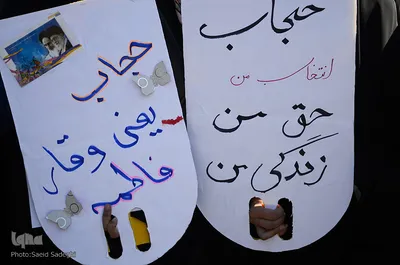 حجاب
یعنی وقار
فاطمه
حجاب
انتخاب من
حق من
زندگی من
ایکنا
Photo:Saeid Sadeghi